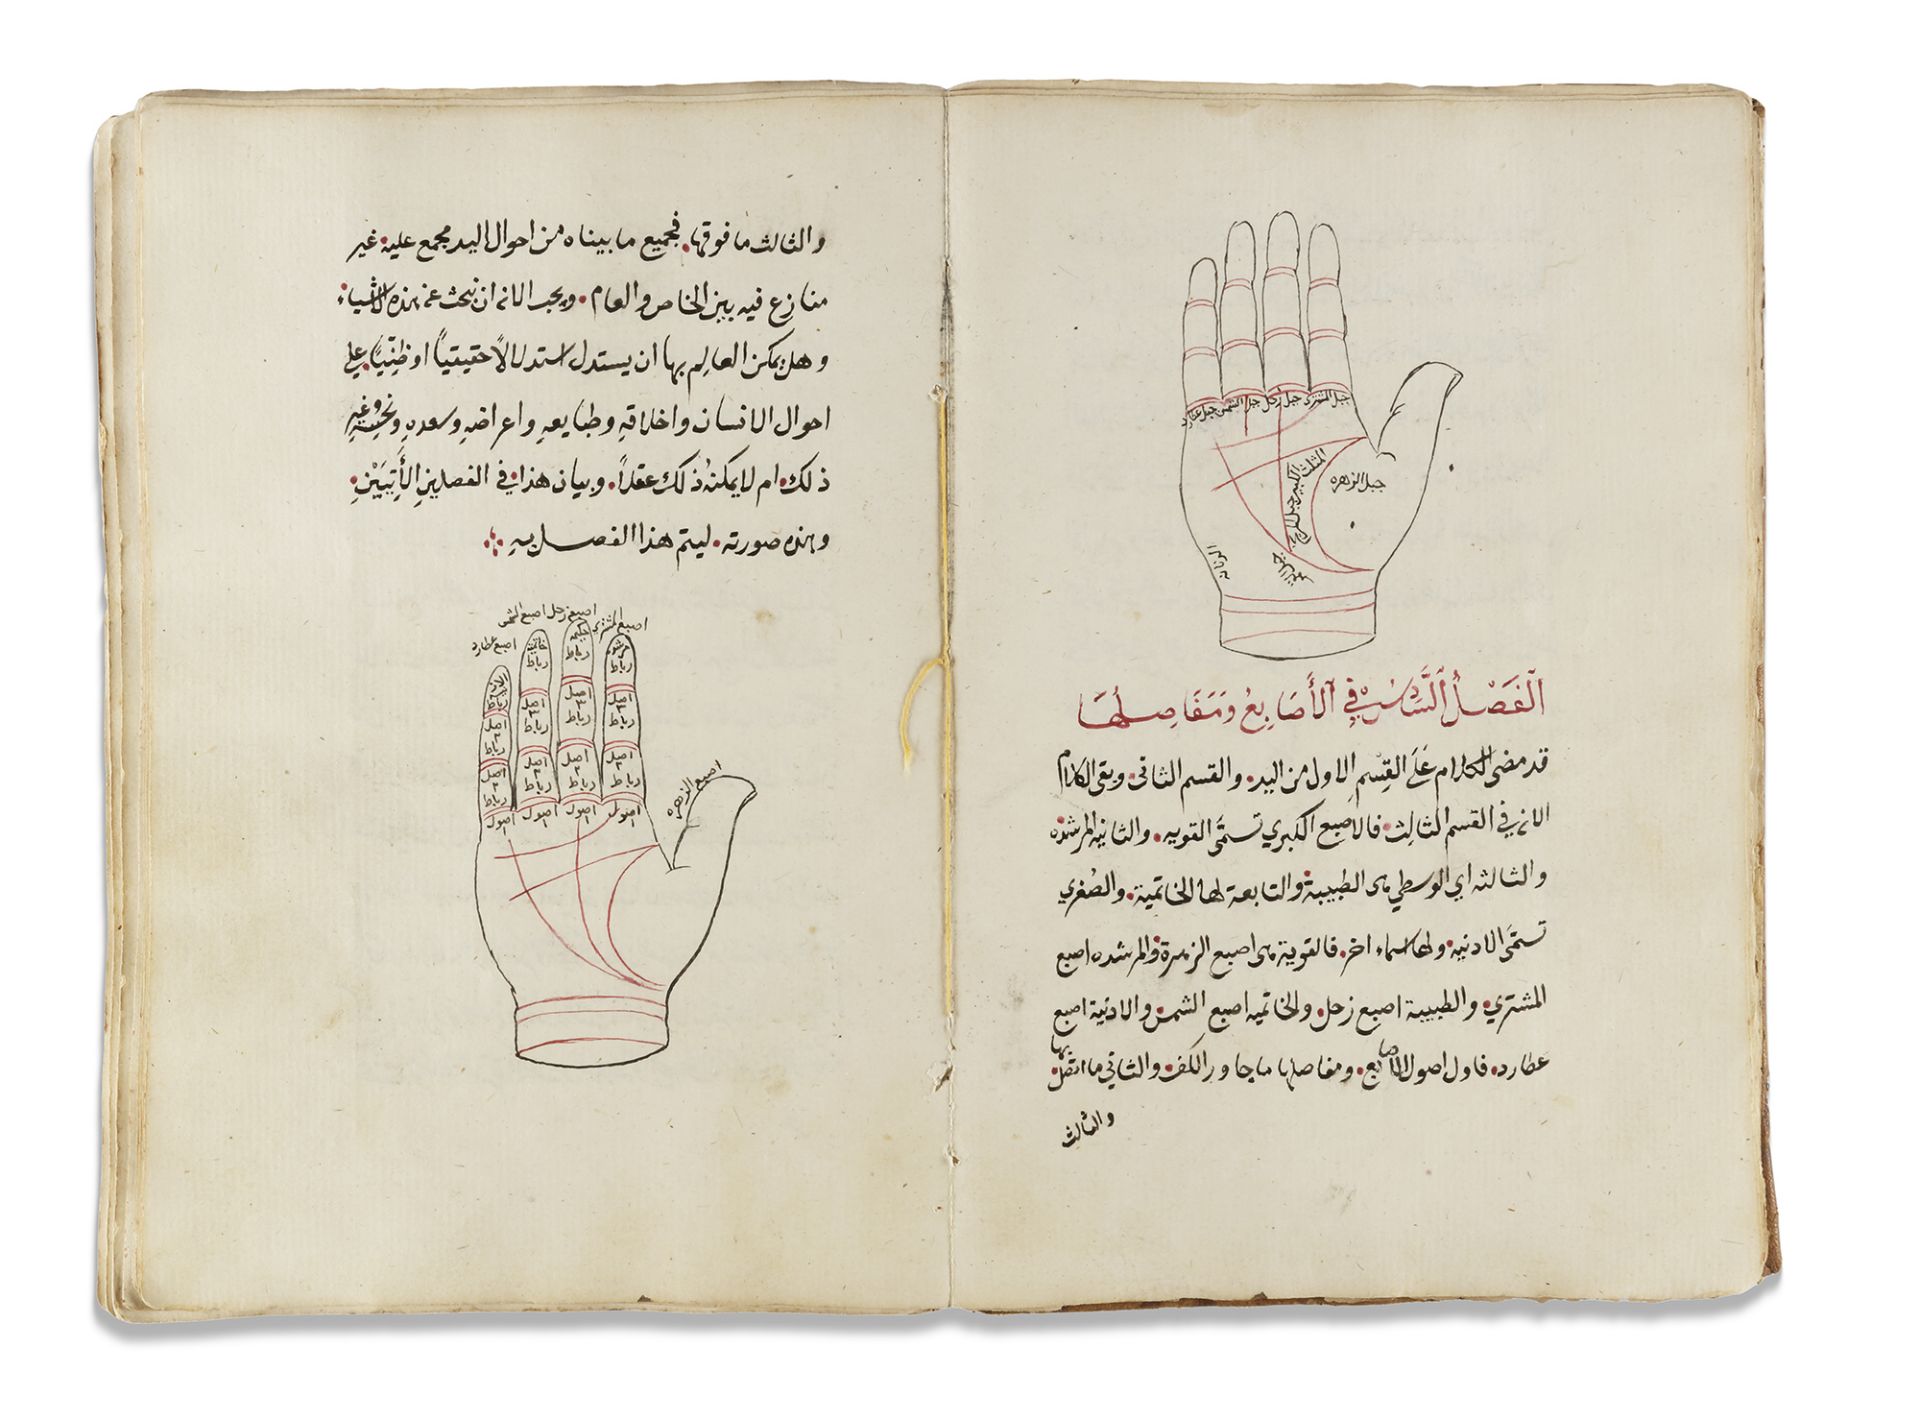 جبل المشتري جبل زحل جبل الشمس جبل عطارد
المثلث الكبير جبل المريخ
جبل الزهره
جبل القمر
الفَصْلُ السَّادسُ في الأَصَابِعُ وَمَفَاصِلُهَا
قد مضى الكلام عَلَى القِسم الاول من اليد. والقسم الثانى. وبقى الكلام
الان في القسم الثالث. فالاصبع الكبري تسمَّى القويه. والثانيه المرشده
والثالثه اي الوسطي هى الطبيبة والتابعة لها الخاتمية. والصُغري
تسمَّى الادنيه. ولها اسماء اخر. فالقوية هى اصبع الزهرة والمرشده اصبع
المشتري. والطبيبة اصبع زحل. والخاتميه اصبع الشمس والادنيه اصبع
عطارد. فاول اصول الاصابع. ومفاصلها ما جاور الكف. والثاني ما اتصل بها.
والثالث
والثالث ما فوقها. فجميع ما بيناه من احوال اليد مجمع عليه. غير
منازع فيه بين الخاص والعام. ويجب الان ان نبحث عن هذه الاشياء.
وهل يمكن العالم بها ان يستدل استدلالاً حقيقياً او ظنّياً. علي
احوال الانسان واخلاقهِ وطبايعهِ واعراضهِ وسعدهِ ونحسِهِ وغيرِ
ذلك. ام لا يمكنهُ ذلك عقلاً. وبيان هذا. في الفصلين الأَتِيَيْنِ.
وهذه صورته. ليتم هذا الفصل بهِ
اصبع المشتري اصبع زحل اصبع الشمس
اصبع عطارد
مرشده رباط
رباط
خاتميه رباط
رباط
اصل ٣ رباط
اصل ٣ رباط
اصل ٣ رباط
اصل ٣ رباط
اصل ٢ رباط
اصل ٢ رباط
اصل ٢ رباط
اصل ٢ رباط
اصول ١
اصول ١
اصول ١
اصول ١
اصبع الزهره